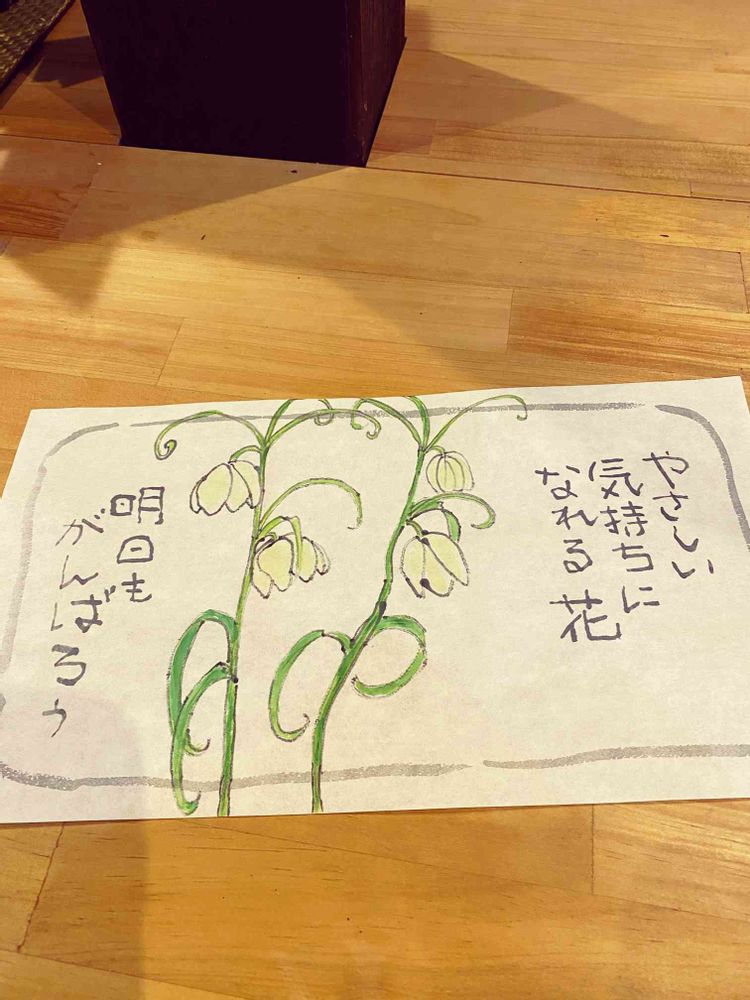 やさしい
気持ちに
なれる花
明日も
がんばろぅ